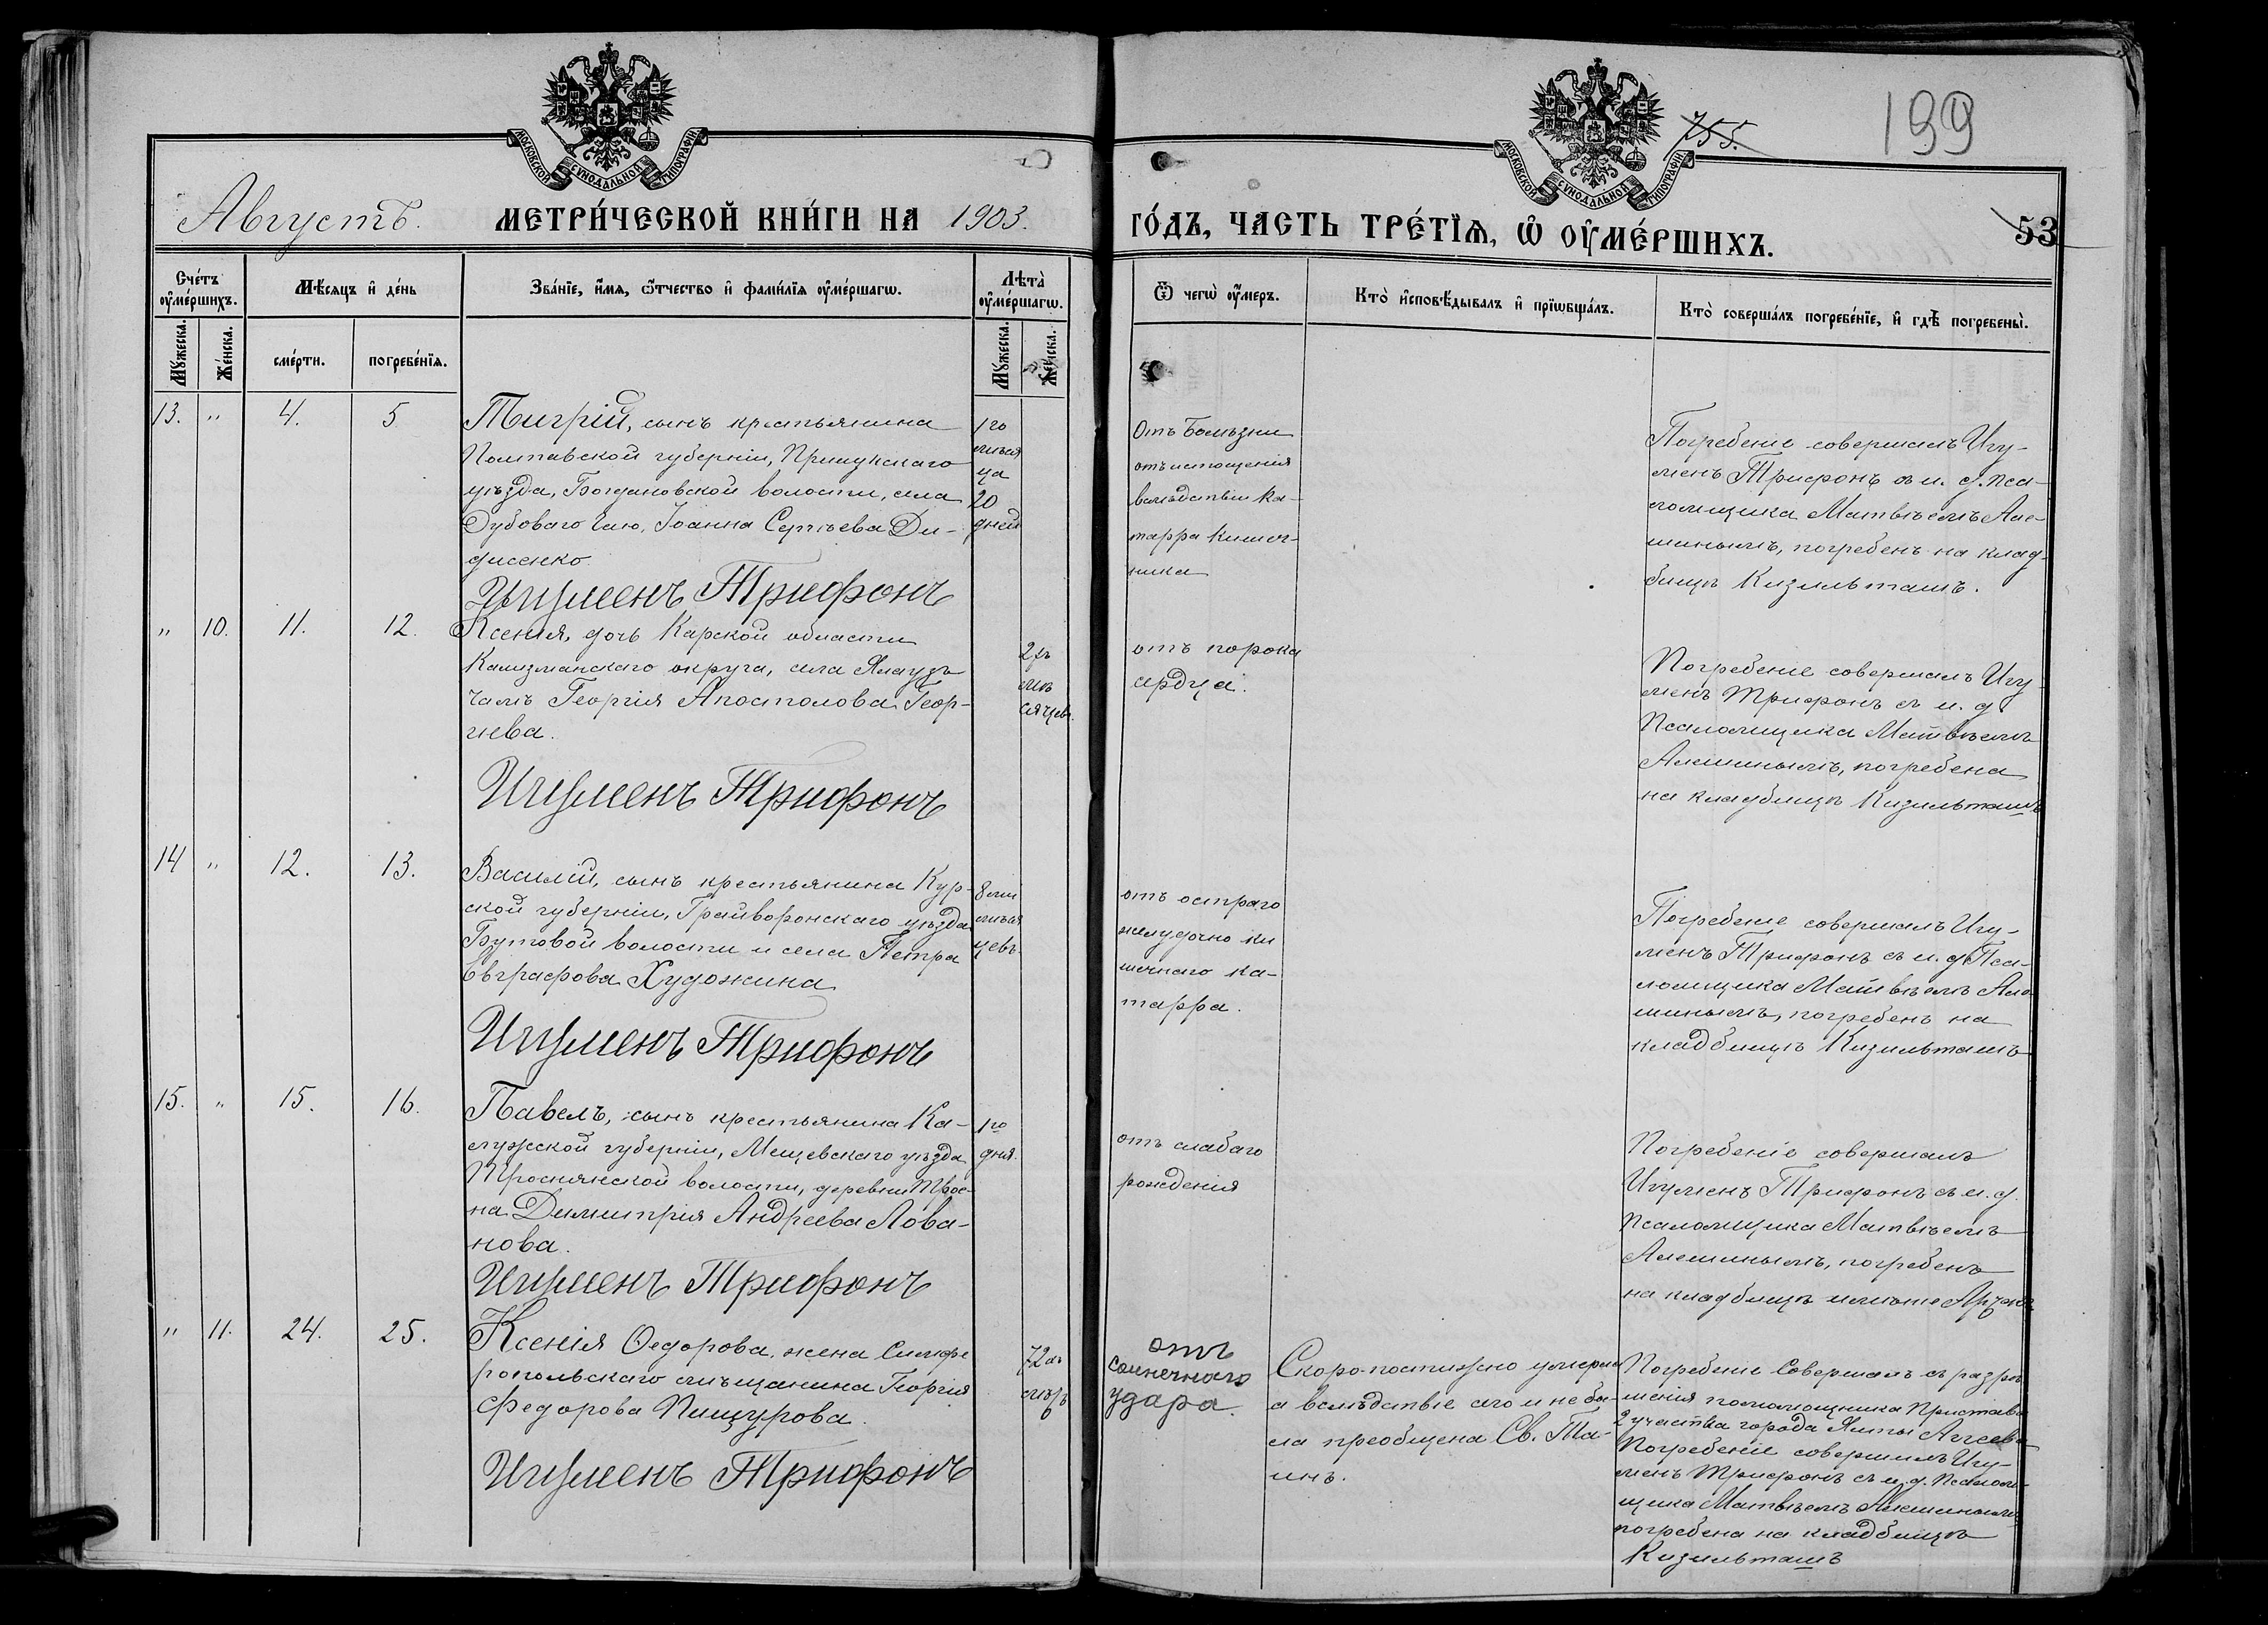 МОСКОВСКОЙ СѴНОДАЛЬНОЙ ТИПОГРАФІИ
МОСКОВСКОЙ СѴНОДАЛЬНОЙ ТИПОГРАФІИ
755.
199
Августъ. МЕТРИ́ЧЕСКОЙ КНИ́ГИ НА 1903.
ГО́ДЪ, ЧАСТЬ ТРЕ́ТІѦ, Ѡ҆ ОУ҆МЕ́РШИХЪ.
53
Сче́тъ оу҆ме́ршихъ.
Мѣ́сяцъ и҆ де́нь
Зва́нїе, и҆́мя, ѻ҆́тчество и҆ фами́лїя оу҆ме́ршагѡ.
Лѣ́та оу҆ме́ршагѡ.
Ѿ чегѡ̀ оу҆́меръ.
Кто̀ и҆сповѣ́дывалъ и҆ прїѡбща́лъ.
Кто̀ соверша́лъ погребе́нїе, и҆ гдѣ̀ погребены̀.
Мꙋ́жеска.
Же́нска.
сме́рти.
погребе́нїя.
Мꙋ́жеска.
Же́нска.
13. " 4. 5
Тигрій, сынъ крестьянина
Полтавской губерніи, Прилукскаго
уѣзда, Богдановской волости, села
Дубоваго Гаю, Іоанна Сергѣева Ди-
денко
Игуменъ Трифонъ
1го
мѣся
ца
20
дней
Отъ Болѣзни
отъ истощенія
вслѣдствіи ка-
тарра кишеч-
ника
Погребеніе совершалъ Игу-
менъ Трифонъ съ и. д. пса-
ломщика Матвѣемъ Але-
шинымъ, погребенъ на клад-
бищѣ Кизильташъ.
" 10. 11. 12.
Ксенія, дочь Карской области
Кагизманскаго округа, села Ялаузъ
чамъ Георгія Апостолова Геор-
гіева.
Игуменъ Трифонъ
2хъ
мѣ
сяцевъ.
отъ порока
сердца.
Погребеніе совершалъ Игу-
менъ Трифонъ съ и. д.
Псаломщика Матвѣемъ
Алешинымъ, погребена
на кладбищѣ Кизильташъ
14 " 12. 13.
Василій, сынъ крестьянина Кур-
ской губерніи, Грайворонскаго уѣзда
Бутовой волости и села Петра
Евграфова Художина
Игуменъ Трифонъ
8ми
мѣся
цевъ.
отъ остраго
желудочно ки
шечнаго ка-
тарра.
Погребеніе совершалъ Игу-
менъ Трифонъ съ и. д. Пса-
ломщика Матвѣемъ Але
шинымъ, погребенъ на
кладбищѣ Кизильташъ
15. " 15. 16.
Павелъ, сынъ крестьянина Ка-
лужской губерніи, Мещевскаго уѣзда
волости, деревни
на Димитрія Андреева Лова-
нова.
Игуменъ Трифонъ
1го
дня.
отъ слабаго
рожденія
Погребеніе совершалъ
Игуменъ Трифонъ съ и. д.
псаломщика Матвѣемъ
Алешинымъ, погребенъ
на кладбищѣ
" 11. 24. 25.
Ксенія Ѳедорова, жена Симфе
ропольскаго мѣщанина Георгія
Федорова Пищурова.
Игуменъ Трифонъ
72хъ
отъ
солнечнаго
удара.
Скоропостижно умерла
а вслѣдствіе сего и не бы-
ла преобщена Св. Та-
инъ.
Погребеніе Совершалъ съ разрѣ
шенія помомощника Пристава
2 участка города Ялты
Погребеніе совершилъ Игу-
менъ Трифонъ съ и. д. псалом-
щика Матвѣемъ Алешинымъ
погребена на кладбищѣ
Кизильташъ